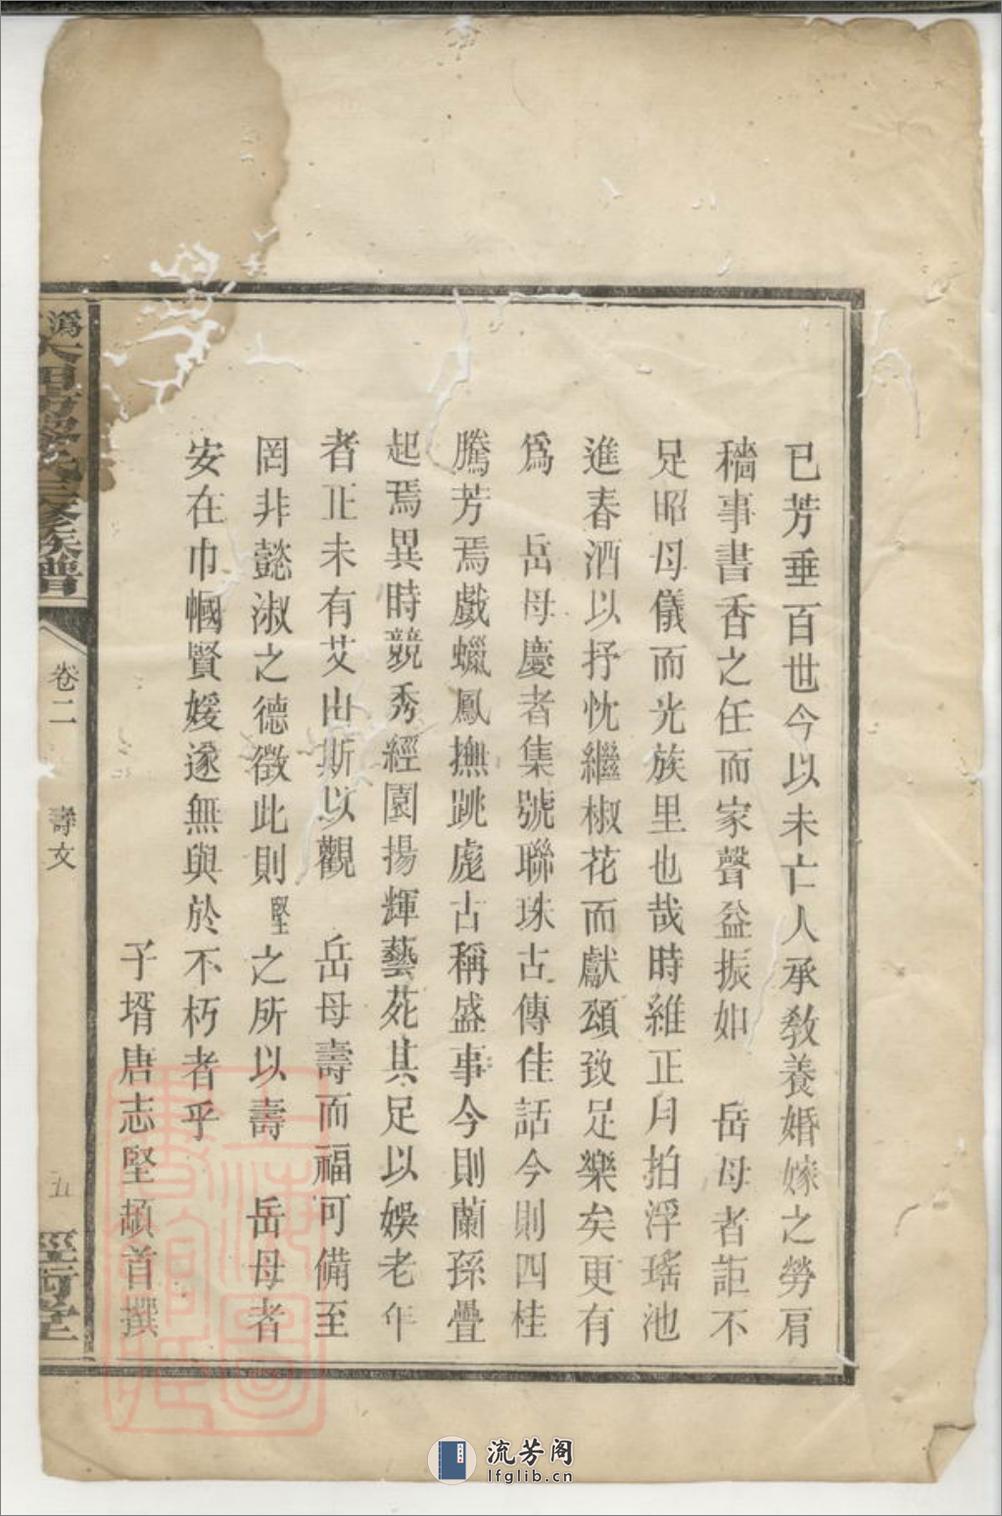 已芳垂百世今以未亡人承敎養婚嫁之勞肩
穡事書香之任而家聲益振如　岳母者詎不
足昭母儀而光族里也哉時維正月拍浮瑤池
進春酒以抒忱繼椒花而獻頌致足樂矣更有
爲　岳母慶者集號聯珠古傳佳話今則四桂
騰芳焉戲蠟鳳撫跳彪古稱盛事今則蘭孫疊
起焉異時競秀經園揚輝藝苑其足以娛老年
者正未有艾由斯以觀　岳母壽而福可備至
罔非懿淑之德徵此則堅之所以壽　岳母者
安在巾幗賢媛遂無與於不朽者乎
子壻唐志堅頓首撰
氏三修族譜
卷二
壽文
五
上海圖書館藏
流芳阁
lfglib.cn